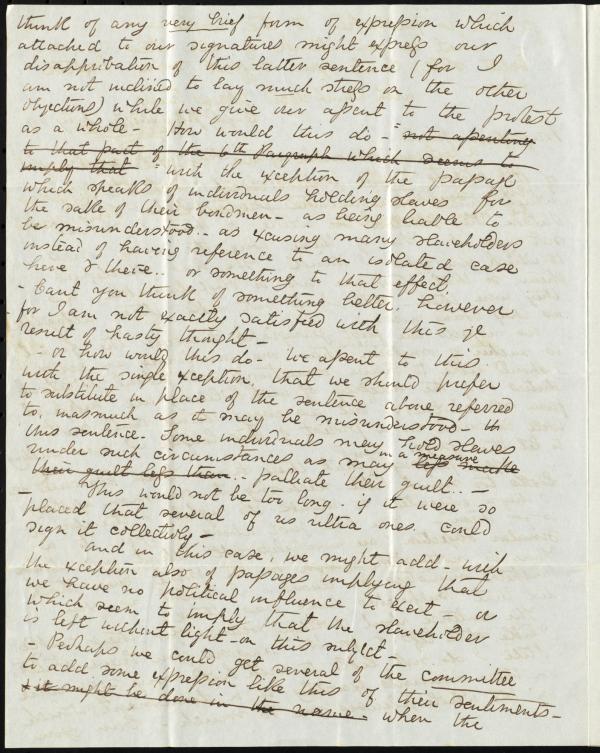 think of any very brief form of expression which
attached to our signatures might express our
disapprobation of this latter sentence (for I
am not inclined to lay much stress on the other
objections) while we give our assent to the protest
as a whole - How would this do - "not assenting
to that part of the 6th Paragraph which seems to
imply that" "with the exception of the passage
which speaks of individuals holding slaves for
the sake of their bondmen - as being liable to
be misunderstood - as excusing many slaveholders
instead of having reference to an isolated case
here & there.. or something to that effect
- Cant you think of something better. however
- for I am not exactly satisfied with this ye
result of hasty thought -
- or how would this do - We assent to this
with the single exception, that we should prefer
to substitute in place of the sentence above referred
to, inasmuch as it may be misunderstood - th
this sentence - Some individuals may hold slaves
under such circumstances as may in a measure less make
their guilt less than .. - palliate their guilt.. -
This would not be too long. if it were so
- placed that several of us ultra ones could
sign it collectively -
and in this case, we might add - with
the exception also of passages implying that
we have no political influence to exert - or
which seem to imply that the slaveholder
is left without light - on this subject -
- Perhaps we could get several of the committee
to add some expression like this of their sentiments -
& it might be done in the name - when the